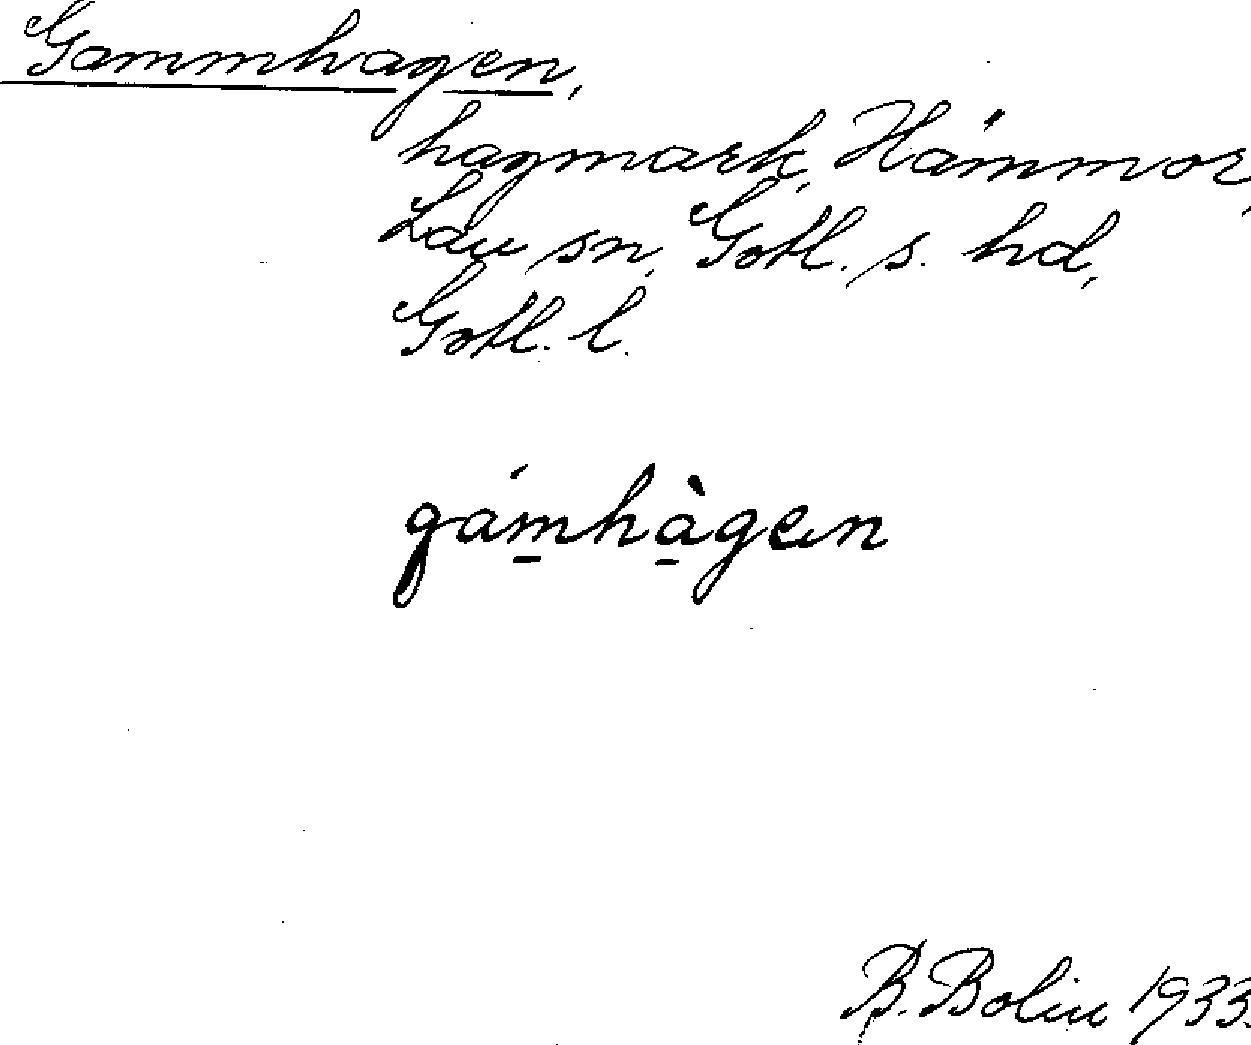 Gammhagen,
hagmark, Hámmor,
Lau sn, Gotl. s. hd,
Gotl. l.
gám̲hà̲gen
B. Bolin 1933.